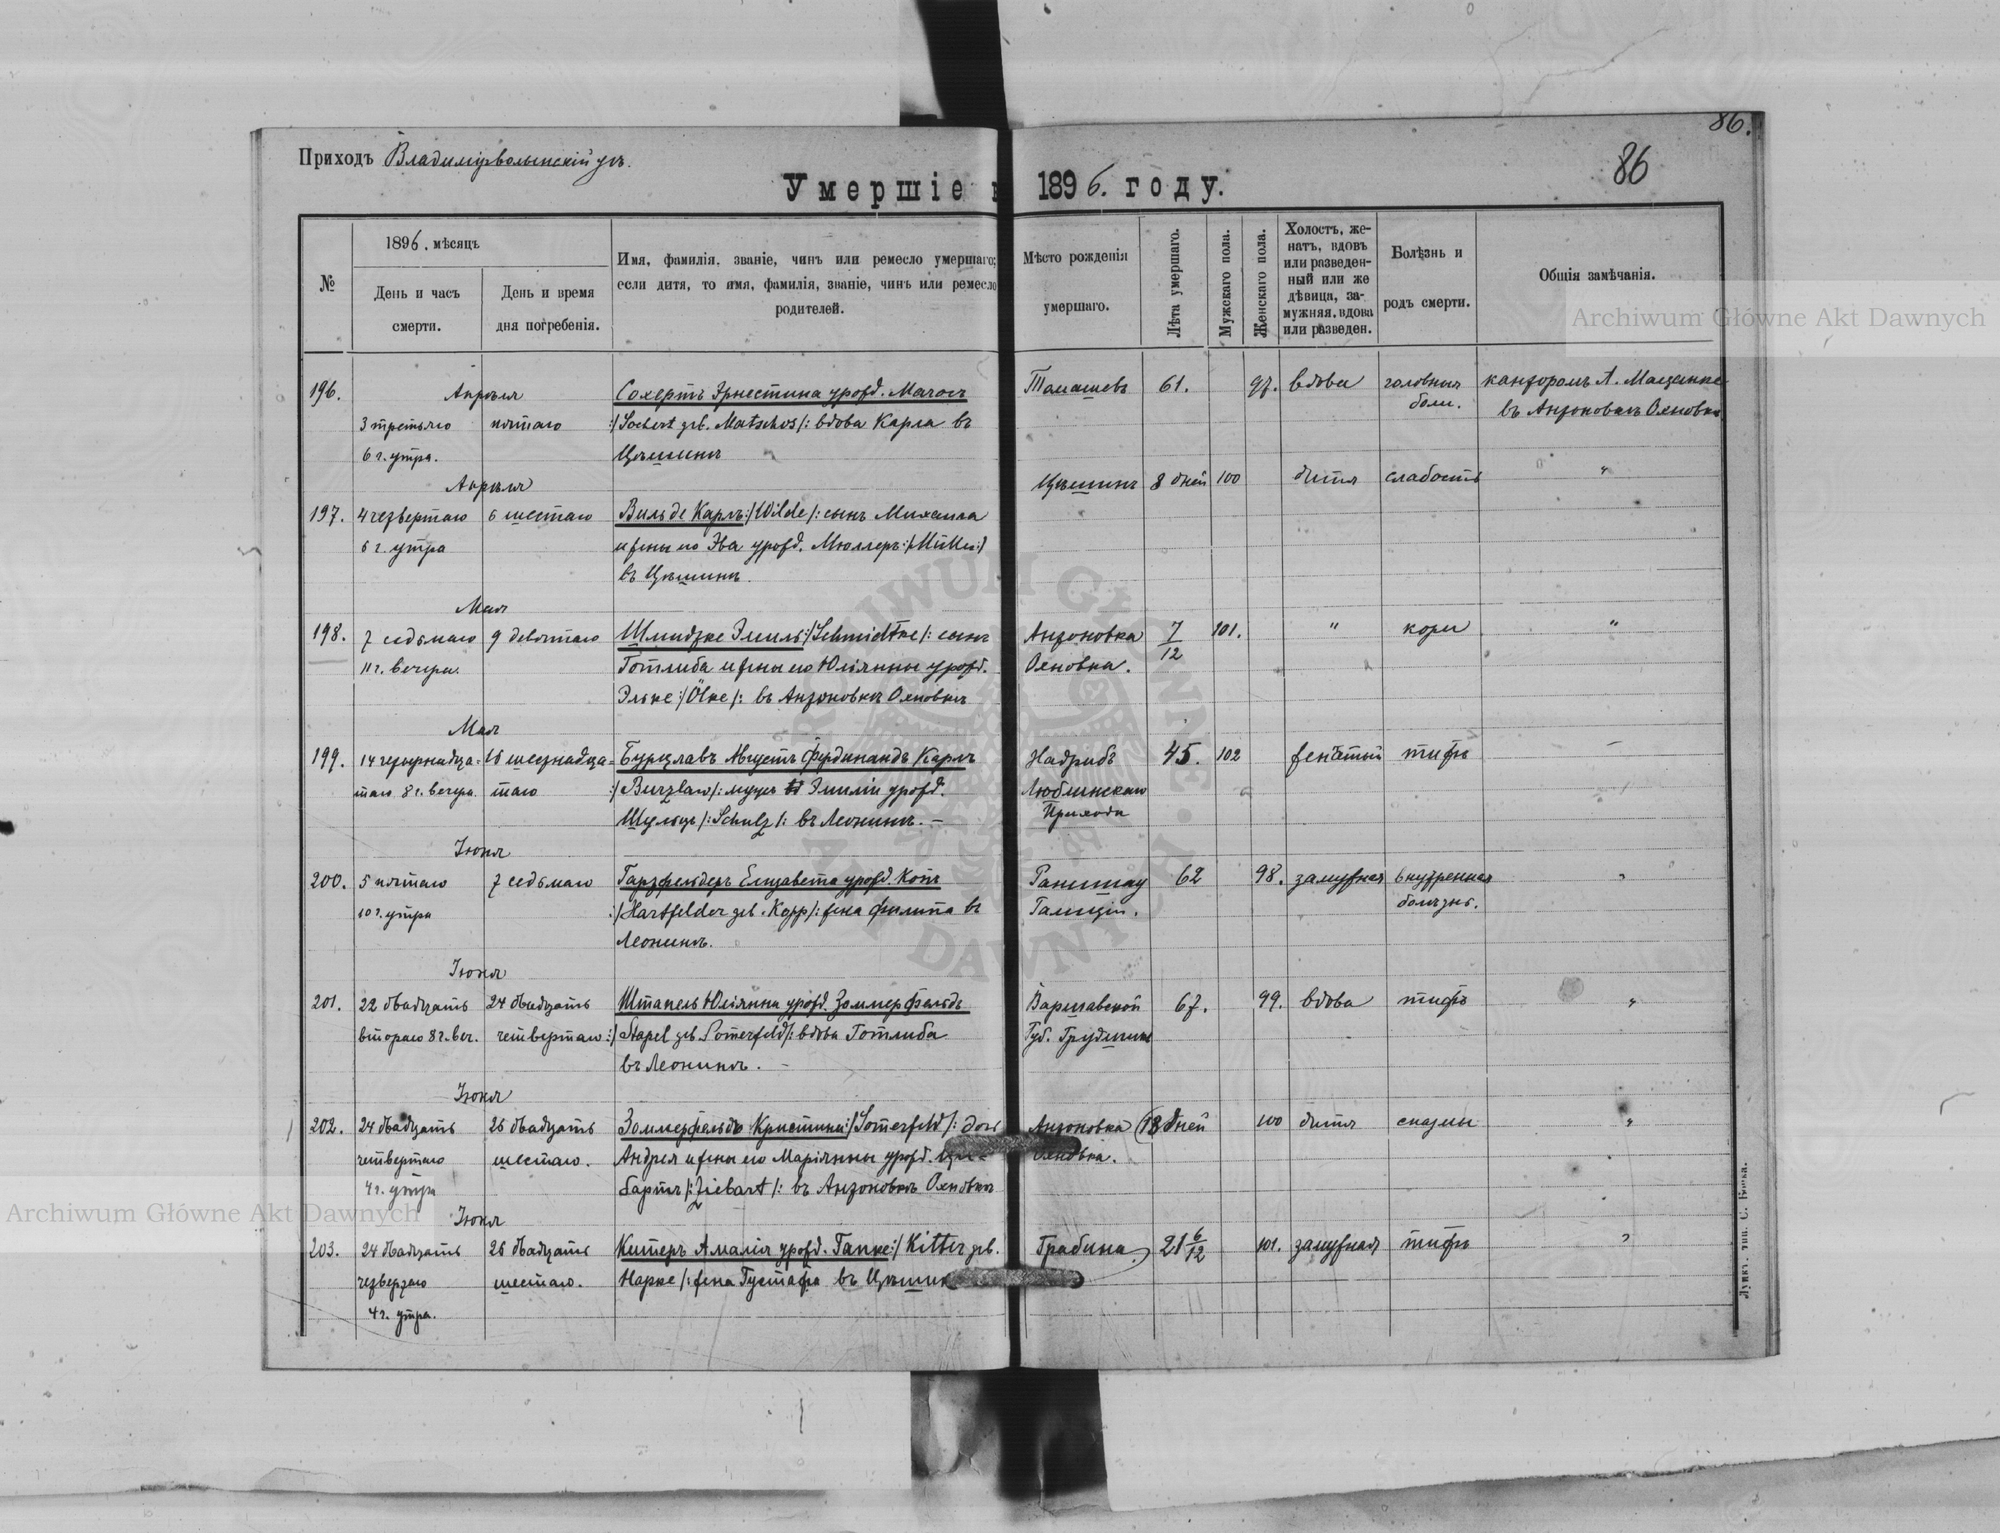 86.
Приходъ Владимірволынскій уѣ.
86
Умершіе в 1896. году.
№
1896. мѣсяцъ
День и часъ смерти.
День и время дня погребенія.
Имя, фамилія, званіе, чинъ или ремесло умершаго;
если дитя, то имя, фамилія, званіе, чинъ или ремесло
родителей.
Мѣсто рожденія
умершаго.
Лѣта умершаго.
Мужскаго пола.
Женскаго пола.
Холостъ, же-
натъ, вдовъ
или разведен-
ный или же
дѣвица, за-
мужняя, вдова
или разведен.
Болѣзнь и
родъ смерти.
Общія замѣчанія.
196. Апрѣля Сохертъ Эрнестина урожд. Томашевъ 61. 97. вдова головныя канторомъ А.
3 третьяго пятаго :/Sochert geb. Matschos/: вдова Карла въ боли. въ Антоновкѣ Ояновка
6 ч. утра. Цѣшинѣ
Апрѣля Цѣшинъ 8 дней 100 дитя слабость "
197. 4 четвертаго 6 шестаго Вильде Карлъ:/Wilde/: сынъ Михаила
6 ч. утра и жены его Эва урожд. Мюллеръ:/Müller:/
въ Цѣшинѣ.
Мая
198. 7 седьмаго 9 девятаго Шмидтке Эмиль:/Schmidtke/: сынъ Антоновка 7/12 101. " кори "
11 ч. вечера. Готлиба и жены его Юліянны урожд. Ояновка.
Эльке:/Ölke/: въ Антоновкѣ Ояновкѣ
Мая
199. 14 четырнадца= 16 шестнадца= Бурцлавъ Августъ Фердинандъ Карлъ Надрыбъ 45. 102 женатый тифъ "
таго 8 ч. вечера. таго :/Burzlaw/: мужъ Эмиліи урожд. Люблинскаго
Шульцъ/:Schulz/: въ Леонинѣ. — Прихода
Іюня
200. 5 пятаго 7 седьмаго Гартфельдеръ Елизавета урожд. Копъ Ранишау 62 98. замужная внутренная "
10 ч. утра :/Hartfelder geb. Kopp/: жена Филипа въ Галиціи. болѣзнь.
Леонинѣ.
Іюня
201. 22 двадцать 24 двадцать Штапель Юліянна урожд. Зоммерфельдъ Варшавской 67. 99. вдова тифъ "
втораго 8 ч. веч. четвертаго :/Stapel geb. Somerfeld/: вдова Готлиба Губ.
въ Леонинѣ. —
Іюня
202. 24 двадцать 26 двадцать Зоммерфельдъ Кристина:/Somerfeld/: дочь Антоновка 13 дней 100 дитя спазмы "
четвертаго шестаго. Андрея и жены его Маріянны урожд. Ци= Ояновка.
бартъ/:Ziebart/: въ Антоновкѣ Ояновкѣ
4 ч. утра
Іюня
203. 24 двадцать 26 двадцать Китеръ Амалія урожд. Гапке:/Kitter geb. Грабина 21 6/12 101. замужная тифъ "
четвертаго шестаго. Hapke/: жена Густафа въ Цѣшинѣ
4 ч. утра.
Archiwum Główne Akt Dawnych
Archiwum Główne Akt Dawnych
ARCHIWUM GŁÓWNE AKT DAWNYCH